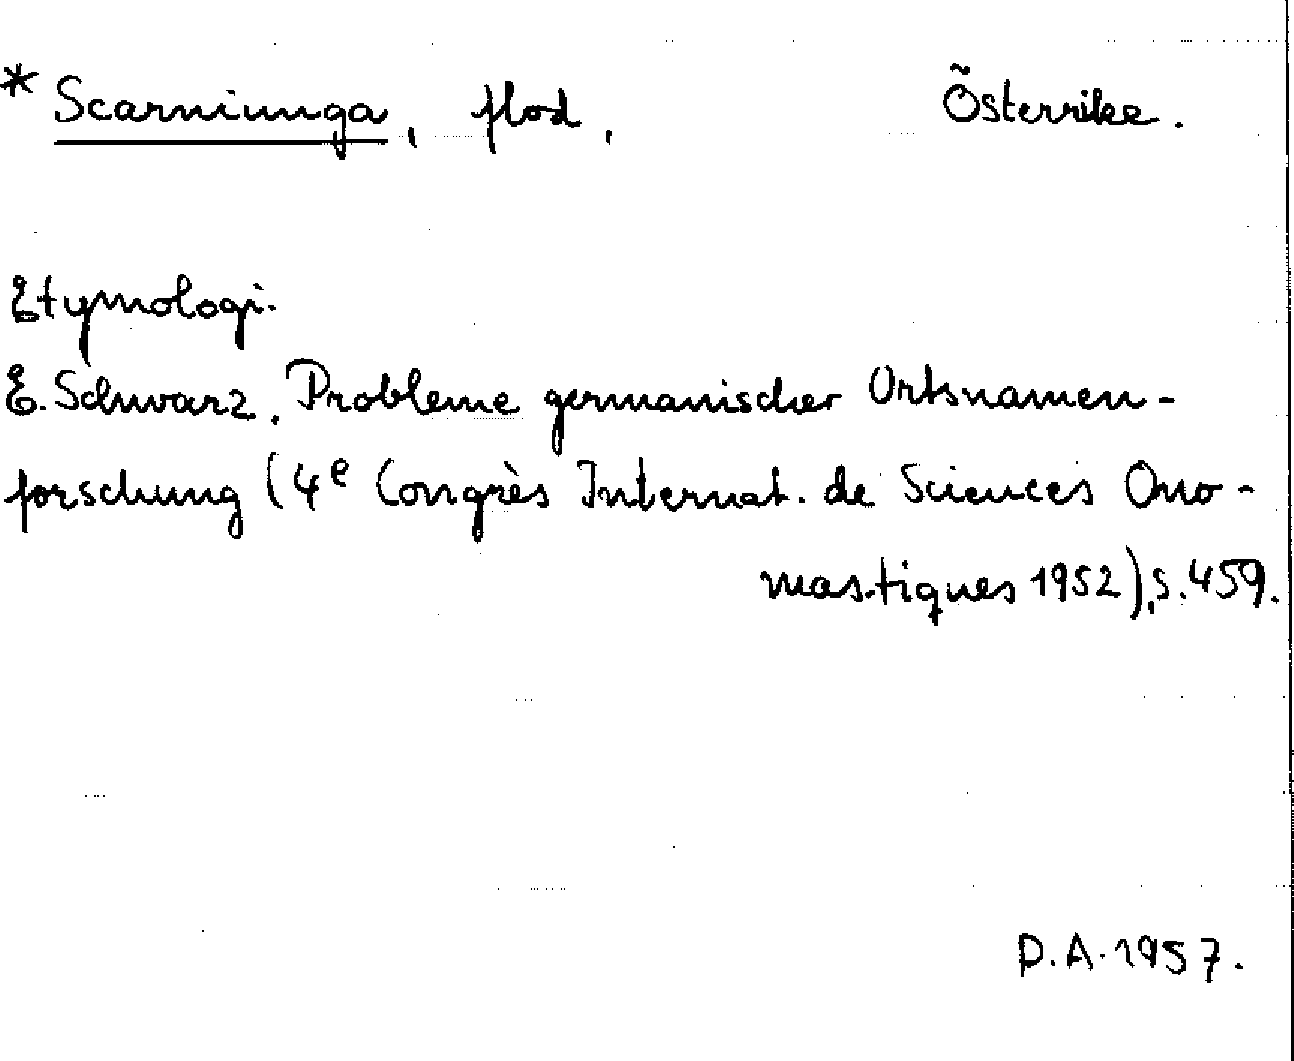 * Scarniunga, flod, Österrike.
Etymologi.
E. Schwarz, Probleme germanischer Ortsnamen-
forschung (4e Congrès Internat. de Sciences Ono-
mastiques 1952), s. 459.
D.A. 1957.